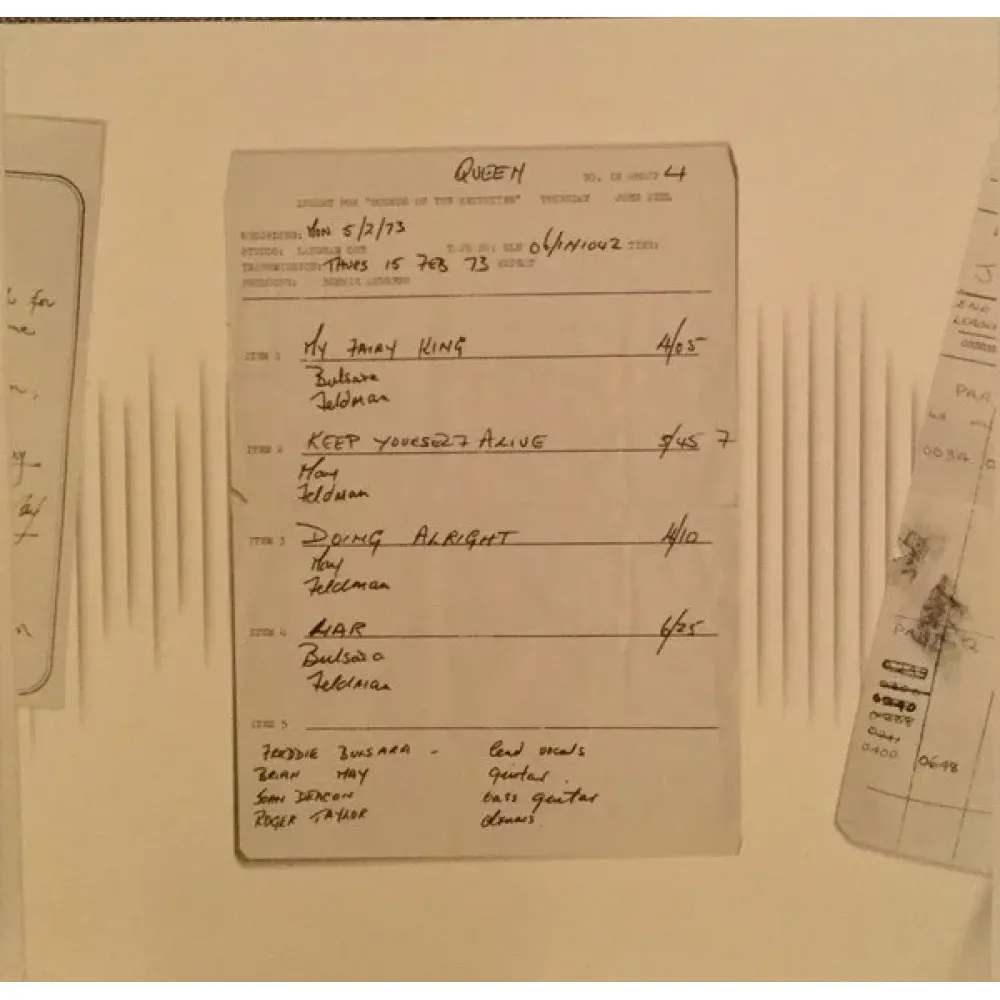 QUEEN NO. IN GROUP 4
INSERT FOR "SOUNDS OF THE SEVENTIES" THURSDAY JOHN PEEL
RECORDING: MON 5/2/73
STUDIO: LANGHAM ONE TAPE NO: 06/1N1042 TIME:
TRANSMISSION: THURS 15 FEB 73 REPEAT
PRODUCER:
ITEM 1 MY FAIRY KING 4/05
Bulsara
Feldman
ITEM 2 KEEP YOURSELF ALIVE 3/45 7
May
Feldman
ITEM 3 DOING ALRIGHT 4/10
May
Feldman
ITEM 4 LIAR 6/25
Bulsara
Feldman
ITEM 5
FREDDIE BULSARA - lead vocals
BRIAN MAY guitar
JOHN DEACON bass guitar
ROGER TAYLOR drums
for
J
2ND
PAR
0034
0400
0648